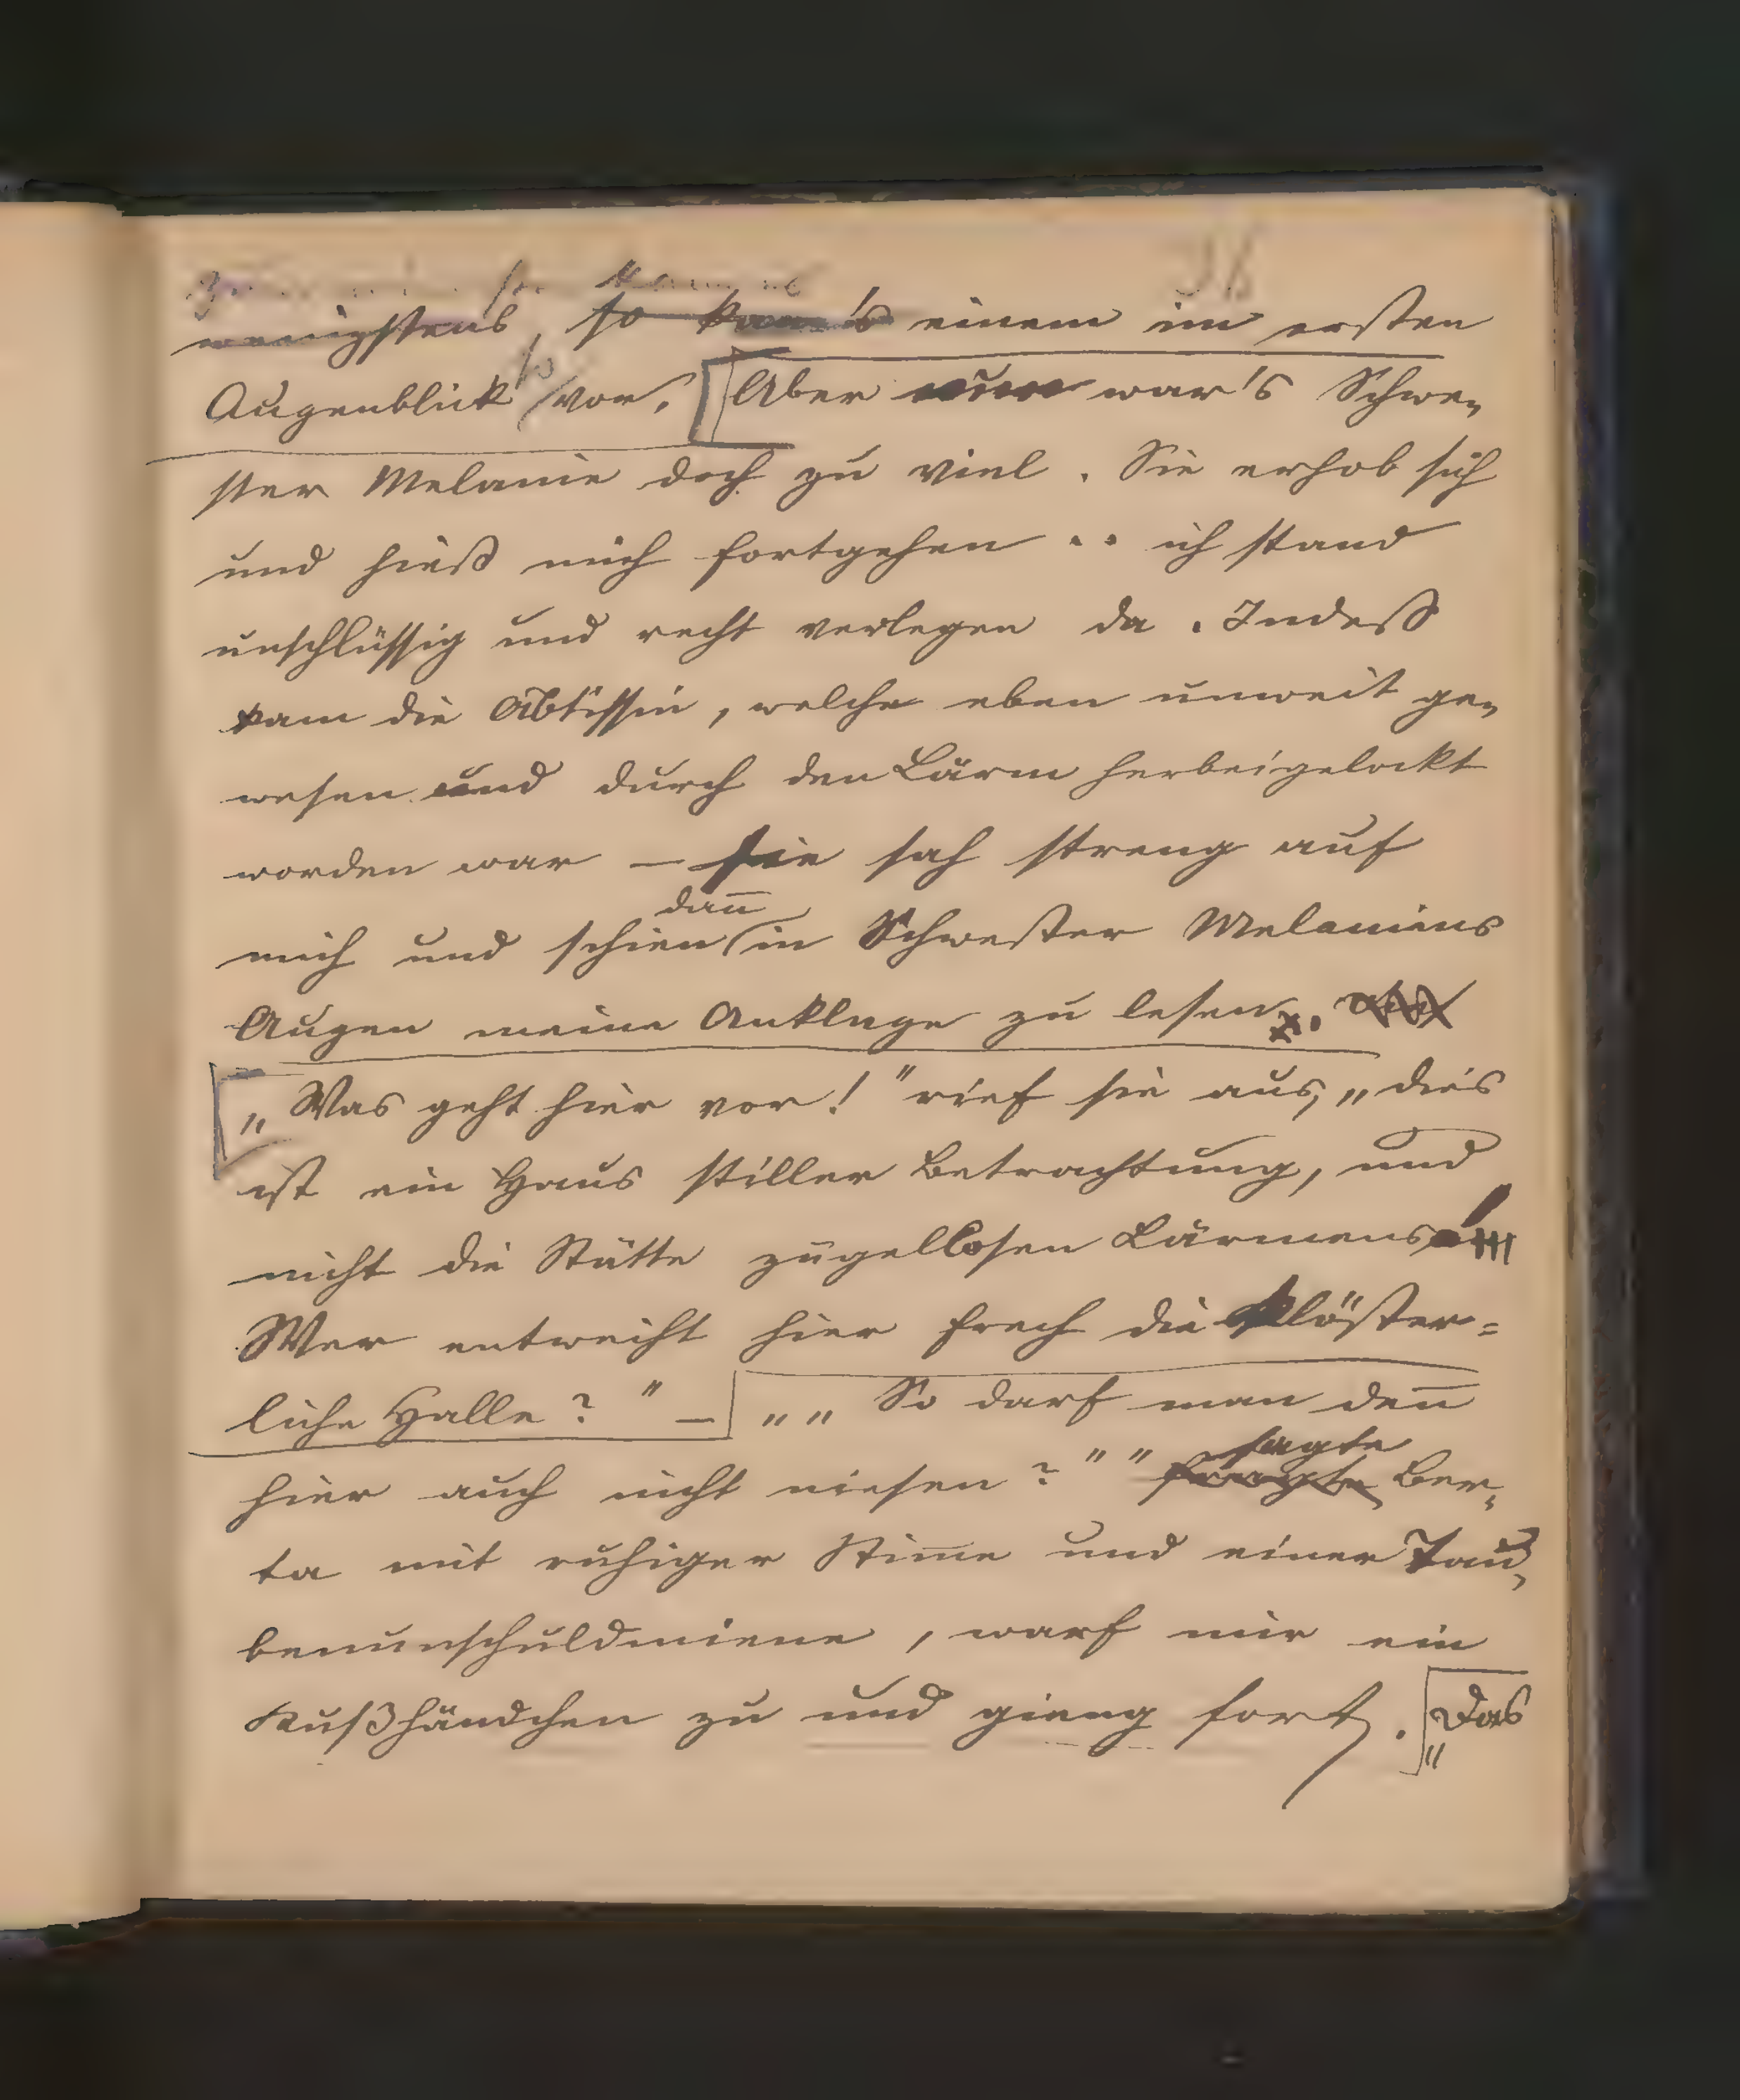 wenigstens, so kam's einem im ersten
Augenblick so vor. Aber nun war's Schwe-
ster Melanie doch zu viel. Sie erhob sich
und hieß mich fortgehen .. ich stand
unschlüssig und recht verlegen da. Indeß
kam die Äbtissin, welche eben unweit ge-
wesen und durch den Lärm herbeigelockt
worden war — sie sah streng auf
dan̄
mich und schien in Schwester Melaniens
Augen meine Anklage zu lesen.
„Was geht hier vor!" rief sie aus, „dies
ist ein Haus stiller Betrachtung, und
nicht die Stätte zügellosen Lärmens!
Wer entweiht hier frech die klöster=
liche Halle?" — „„So darf man den̄
sagte
hier auch nicht niesen?"" fragte Ber-
ta mit ruhiger Stim̄e und einer Tau-
benunschuldmiene, warf mir ein
Kußhändchen zu und gieng fort. „Das